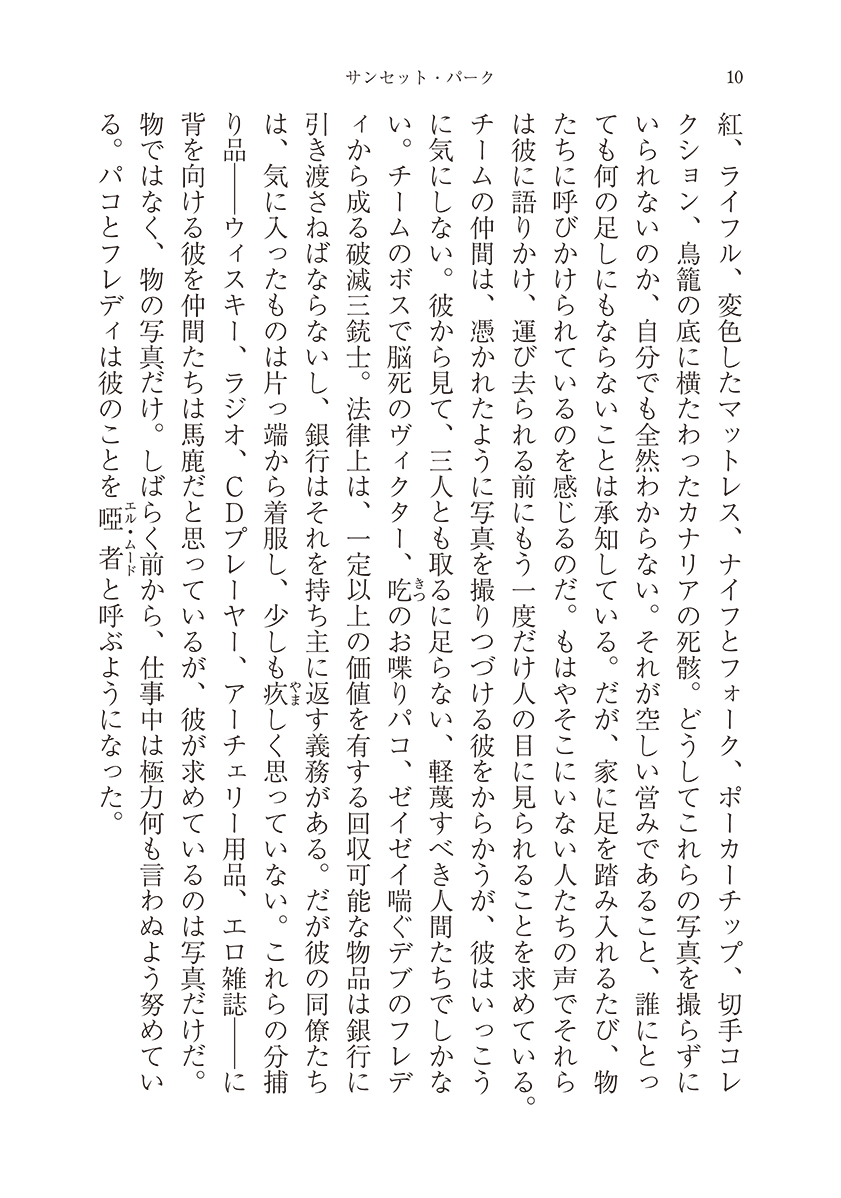 サンセット・パーク
10
紅、ライフル、変色したマットレス、ナイフとフォーク、ポーカーチップ、切手コレ
クション、鳥籠の底に横たわったカナリアの死骸。どうしてこれらの写真を撮らずに
いられないのか、自分でも全然わからない。それが空しい営みであること、誰にとっ
ても何の足しにもならないことは承知している。だが、家に足を踏み入れるたび、物
たちに呼びかけられているのを感じるのだ。もはやそこにいない人たちの声でそれら
は彼に語りかけ、運び去られる前にもう一度だけ人の目に見られることを求めている。
チームの仲間は、憑かれたように写真を撮りつづける彼をからかうが、彼はいっこう
に気にしない。彼から見て、三人とも取るに足らない、軽蔑すべき人間たちでしかな
い。チームのボスで脳死のヴィクター、吃きつのお喋りパコ、ゼイゼイ喘ぐデブのフレデ
ィから成る破滅三銃士。法律上は、一定以上の価値を有する回収可能な物品は銀行に
引き渡さねばならないし、銀行はそれを持ち主に返す義務がある。だが彼の同僚たち
は、気に入ったものは片っ端から着服し、少しも疚やましく思っていない。これらの分捕
り品――ウィスキー、ラジオ、CDプレーヤー、アーチェリー用品、エロ雑誌――に
背を向ける彼を仲間たちは馬鹿だと思っているが、彼が求めているのは写真だけだ。
物ではなく、物の写真だけ。しばらく前から、仕事中は極力何も言わぬよう努めてい
る。パコとフレディは彼のことを啞者エル・ムードと呼ぶようになった。